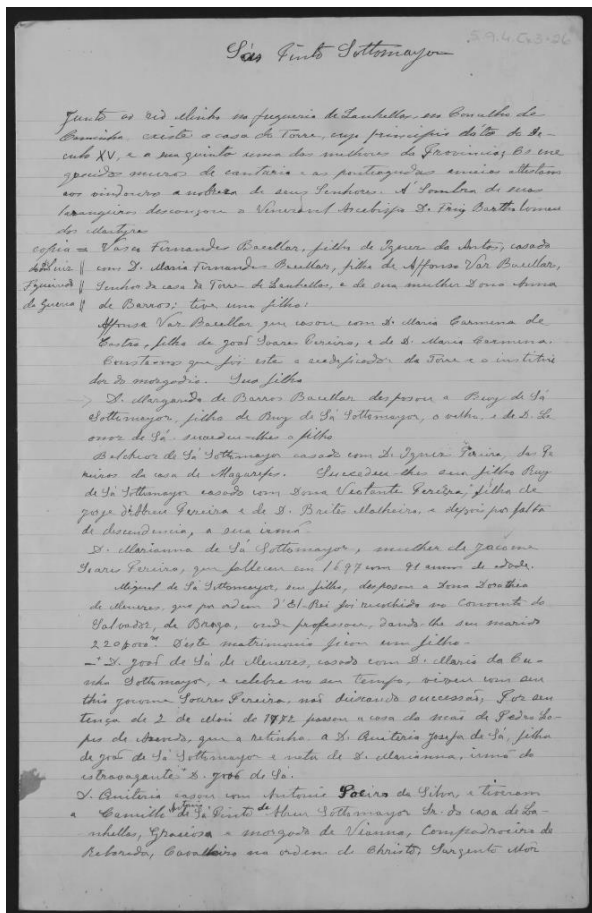 S.9.4.Cx3-26
Sás Pinto Sottomayor
Junto ao rio Minho na freguesia de Lanhellas, no Concelho de
Caminha existe a casa da Torre, cujo principio dáta do Se-
culo XV, e a sua quinta uma das melhores da Provincia; Os ene
grecidos muros de cantaria e as ponteagudas ameias attestam
aos vindouros a nobreza de seus Senhores. Á Sombra de suas
larangeiras descançou o Veneravel Arcebispo D. Frey Bartholomeu
dos Martyres
copia Vasco Fernandes Bacellar, filho de Ignez da Antas, casado
de Luiz com D. Maria Fernandes Bacellar, filha de Affonso Vaz Bacellar,
Figueiredo Senhor da casa da Torre de Lanhellas, e de sua mulher Dona Anna
da Guerra de Barros; teve um filho:
Affonso Vaz Bacellar que casou com D. Maria Carmena de
Castro, filha de João Soares Pereira, e de D. Maria Carmena.
Constanos que foi este o reedificador da Torre e o institui
dor do morgadio. Sua filha
D. Margarida de Barros Bacellar desposou a Ruy de Sá
Sottomayor, filho de Ruy de Sá Sottomayor, o velho, e de D. Le
onor de Sá. succedeu-lhes o filho
Belchior de Sá Sottomayor casado com D. Ignez Pereira, dos Pe
reiras da casa de Mazarefes. Succedeu-lhes seu filho Ruy
de Sá Sottomayor casado com Dona Pereira, filha de
Jorge d'Abreu Pereira e de D. Brites Malheiro. e depois por falta
de descendencia, a sua irmã
D. Marianna de Sá Sottomayor, mulher de Jacome
Soares Pereira, que falleceu em 1697 com 91 annos de edade.
Miguel de Sá Sottomayor, seu filho, desposou a Dona Dorothea
de Menezes, que por ordem d'El-Rei foi recolhida no Convento do
Salvador, de Braga, onde professou, dando-lhe seu marido
220$000 rs. D'este matrimonio ficou um filho.
D. João de Sá de Menezes, casado com D. Maria da Cu-
nha Sottomayor, e celebre no seu tempo, viveu com seu
thio Jacome Soares Pereira, não deixando successão, Por sen
tença de 2 de Maio de 1772 passou a casa da mão de Pedro Lo-
pes de Azevedo, que a retinha a D. Quiteria Josefa de Sá, filha
de João de Sá Sottomayor e neta de D. Marianna, irmã do
extravagante D. João de Sá.
D. Quiteria casou com Antonio da Silva, e tiveram
a Camillo Antonio de Sá Pinto de Abreu Sottomayor Sr. da casa de La-
nhellas, Graciosa e morgado de Vianna, Compadroeiro de
Reboreda, Cavalleiro na ordem de Christo, Sargento Mór